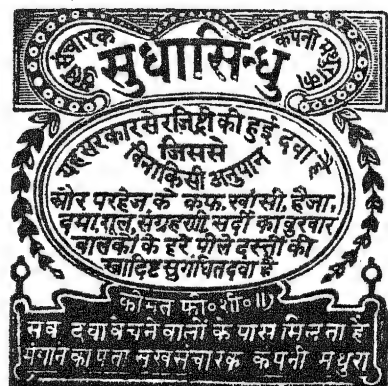 सुख संचारक
सुधासिन्धु
कंपनी मथुरा का
यह सरकार से रजिष्ट्री की हुई दवा है
जिससे
बिना किसी अनुपान
और परहेज के कफ, खांसी, हैजा,
दमा, शूल, संग्रहणी, सर्दी का बुखार
बालकों के हरे पीले दस्तों की
स्वादिष्ट सुगंधित दवा है
कीमत फी॰ शी॰ ॥)
सब दवा बेचने वालों के पास मिलता है
मंगाने का पता सुख संचारक कंपनी मथुरा